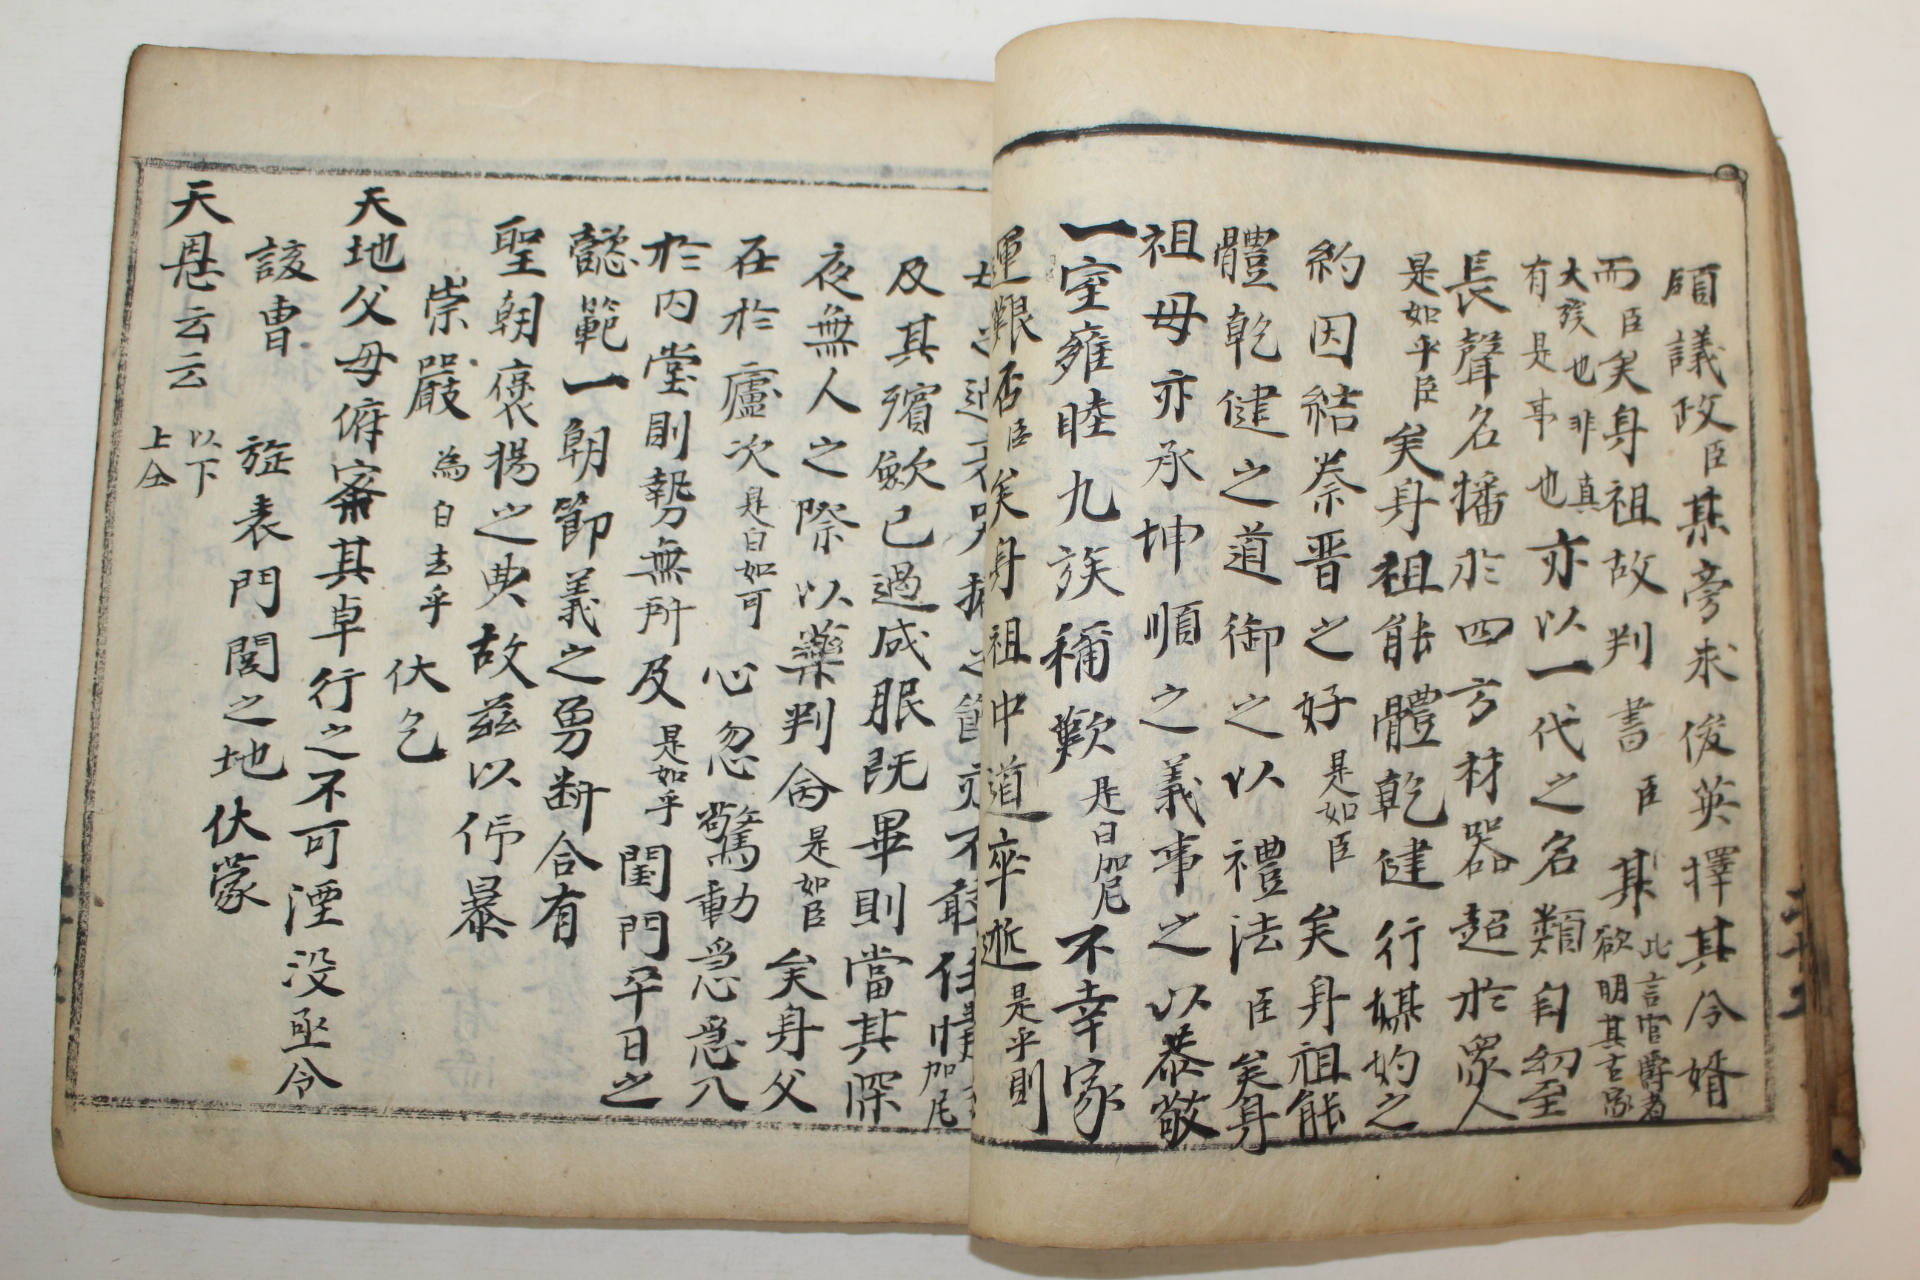 領議政臣某旁求俊英擇其令婿
而臣矣身祖故判書臣某此言官爵者欲明其古家
大族也非真有是事也亦以一代之名類自幼至
長聲名播於四方材器超於衆人
是如乎臣矣身祖能體乾健行媒妁之
約因結秦晋之好是如臣矣身祖能
體乾健之道御之以禮法臣矣身
祖母亦承坤順之義事之以恭敬
一室雍睦九族稱歎是白加尼不幸家
運艱否臣矣身祖中道卒逝是乎則
之節亦不敢任情加尼
及其殯歛已過成服既畢則當其深
夜無人之際以藥判命是如臣矣身父
在於廬次是白如可心忽驚動急急入
於內堂則勢無所及是如乎閨門平日之
懿範一朝節義之勇断合有
聖朝褒揚之典故茲以俜暴
崇嚴為白去乎伏乞
天地父母俯察其卓行之不可湮没亟令
該曹旌表門閭之地伏蒙
天恩云云以下上仝